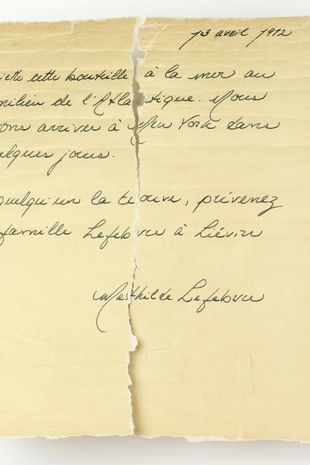 13 avril 1912
jette cette bouteille à la mer au
milieu de l'Atlantique. Nous
ons arriver à New York dans
elques jours.
quelqu'un la trouve, prévenez
famille Lefebvre à Liévin
Mathilde Lefebvre